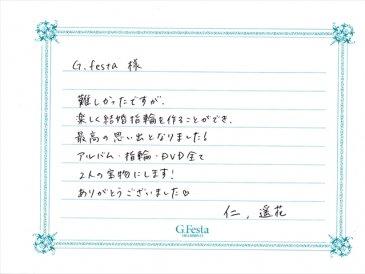 G.festa 様
難しかったですが、
楽しく結婚指輪を作ることができ、
最高の思い出となりました!
アルバム・指輪・DVD全て
2人の宝物にします!
ありがとうございました♡
仁、遥花
G.Festa